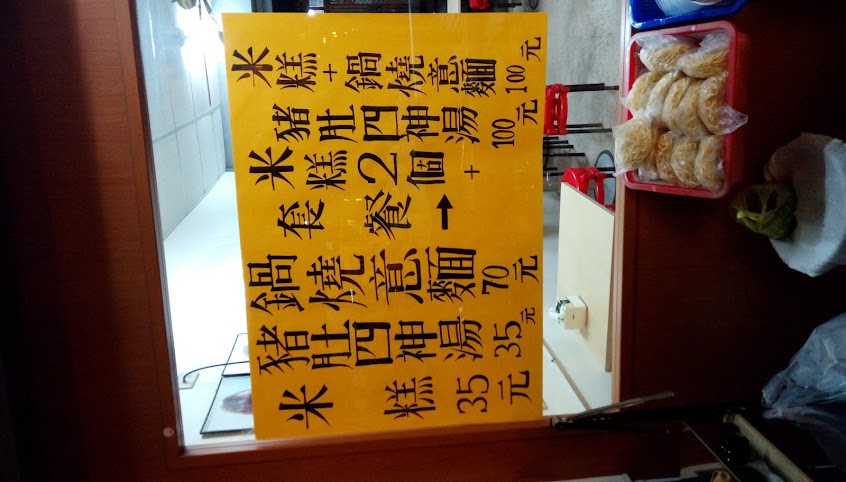 米糕35元
豬肚四神湯35元
鍋燒意麵70元
套餐→
米糕2個+
豬肚四神湯100元
米糕+鍋燒意麵100元